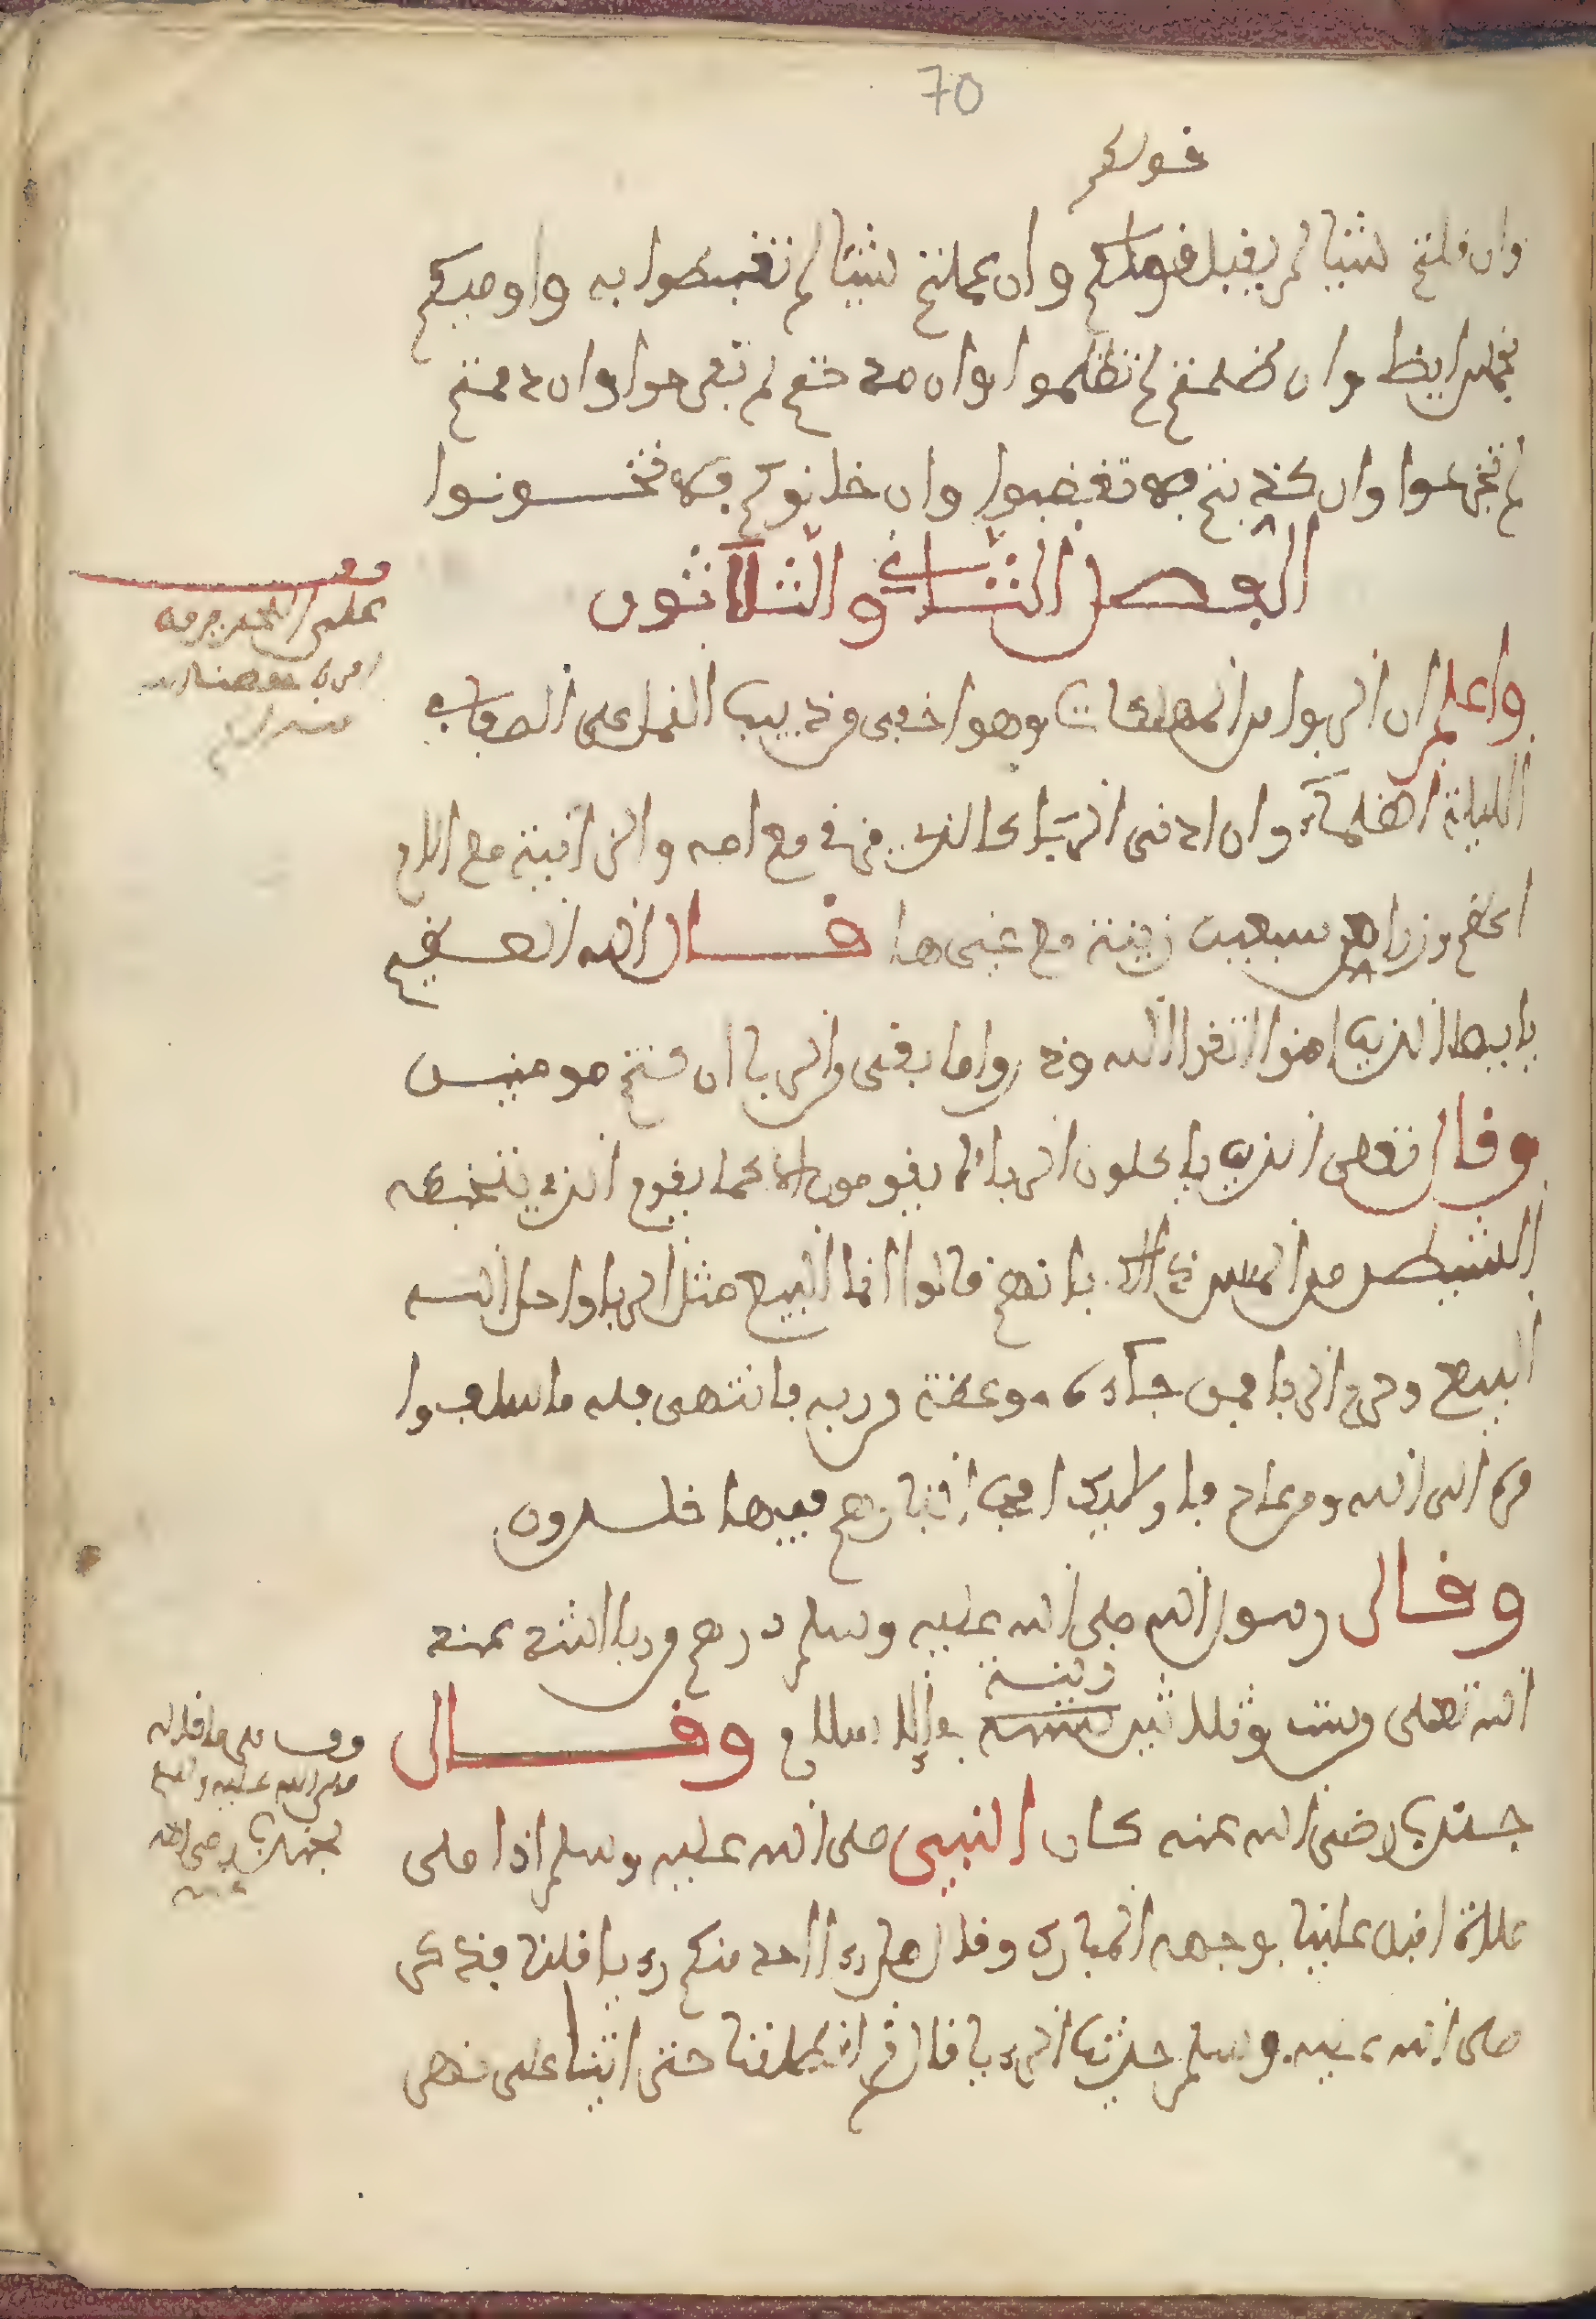 70
قولكم
وان قلتم شيئا لم يقبل قولكم وان عملتم شيئا لم تغبطوا به واوصيكم
بخمس ايظا وان ظلمتم لم تظلموا وان مدحتم لم تفرحوا وان ذممتم
لم تجزعوا وان كذبتم فلا تغضبوا وان خانوكم فلا تخونوا
الفصل الثاني والثلاثون
واعلم ان الربوا من المهلكات وهوا خفى من دبيب النمل على الصفا في
الليلة الظلماء وان ادنى الربا كالذي زنى مع امه والزانية مع الام
اعظم وزرا من سبعين زنية مع غيرها قال الله العظيم
يايها الذين امنوا اتقوا الله وذروا ما بقى من الربا ان كنتم مومنين
وقال تعلى الذين ياكلون الربا لا يقومون الا كما يقوم الذي يتخبطه
الشيطن من المس ذلك بانهم قالوا انما البيع مثل الربا واحل الله
البيع وحرم الربا فمن جاءه موعظة من ربه فانتهى فله ما سلف وا
مره الى الله ومن عاد فاوليك اصحب النار هم فيها خلدون
وقال رسول الله صلى الله عليه وسلم درهم من ربا اشد عند
الله تعلى من ست وثلاثين زنية في الاسلام وقال
جندب رضى الله عنه كان النبيى صلى الله عليه وسلم اذا صلى
صلاة اقبل علينا بوجهه المبارك وقال هل رءا احد منكم رءيا قلنا فذكر
صلى الله عليه وسلم حديث الرءيا قال ثم انطلقنا حتى اتينا على نهر
وقف
على
وقف على ما قاله
صلى الله عليه وسلم
لجندب رضى الله
عنه